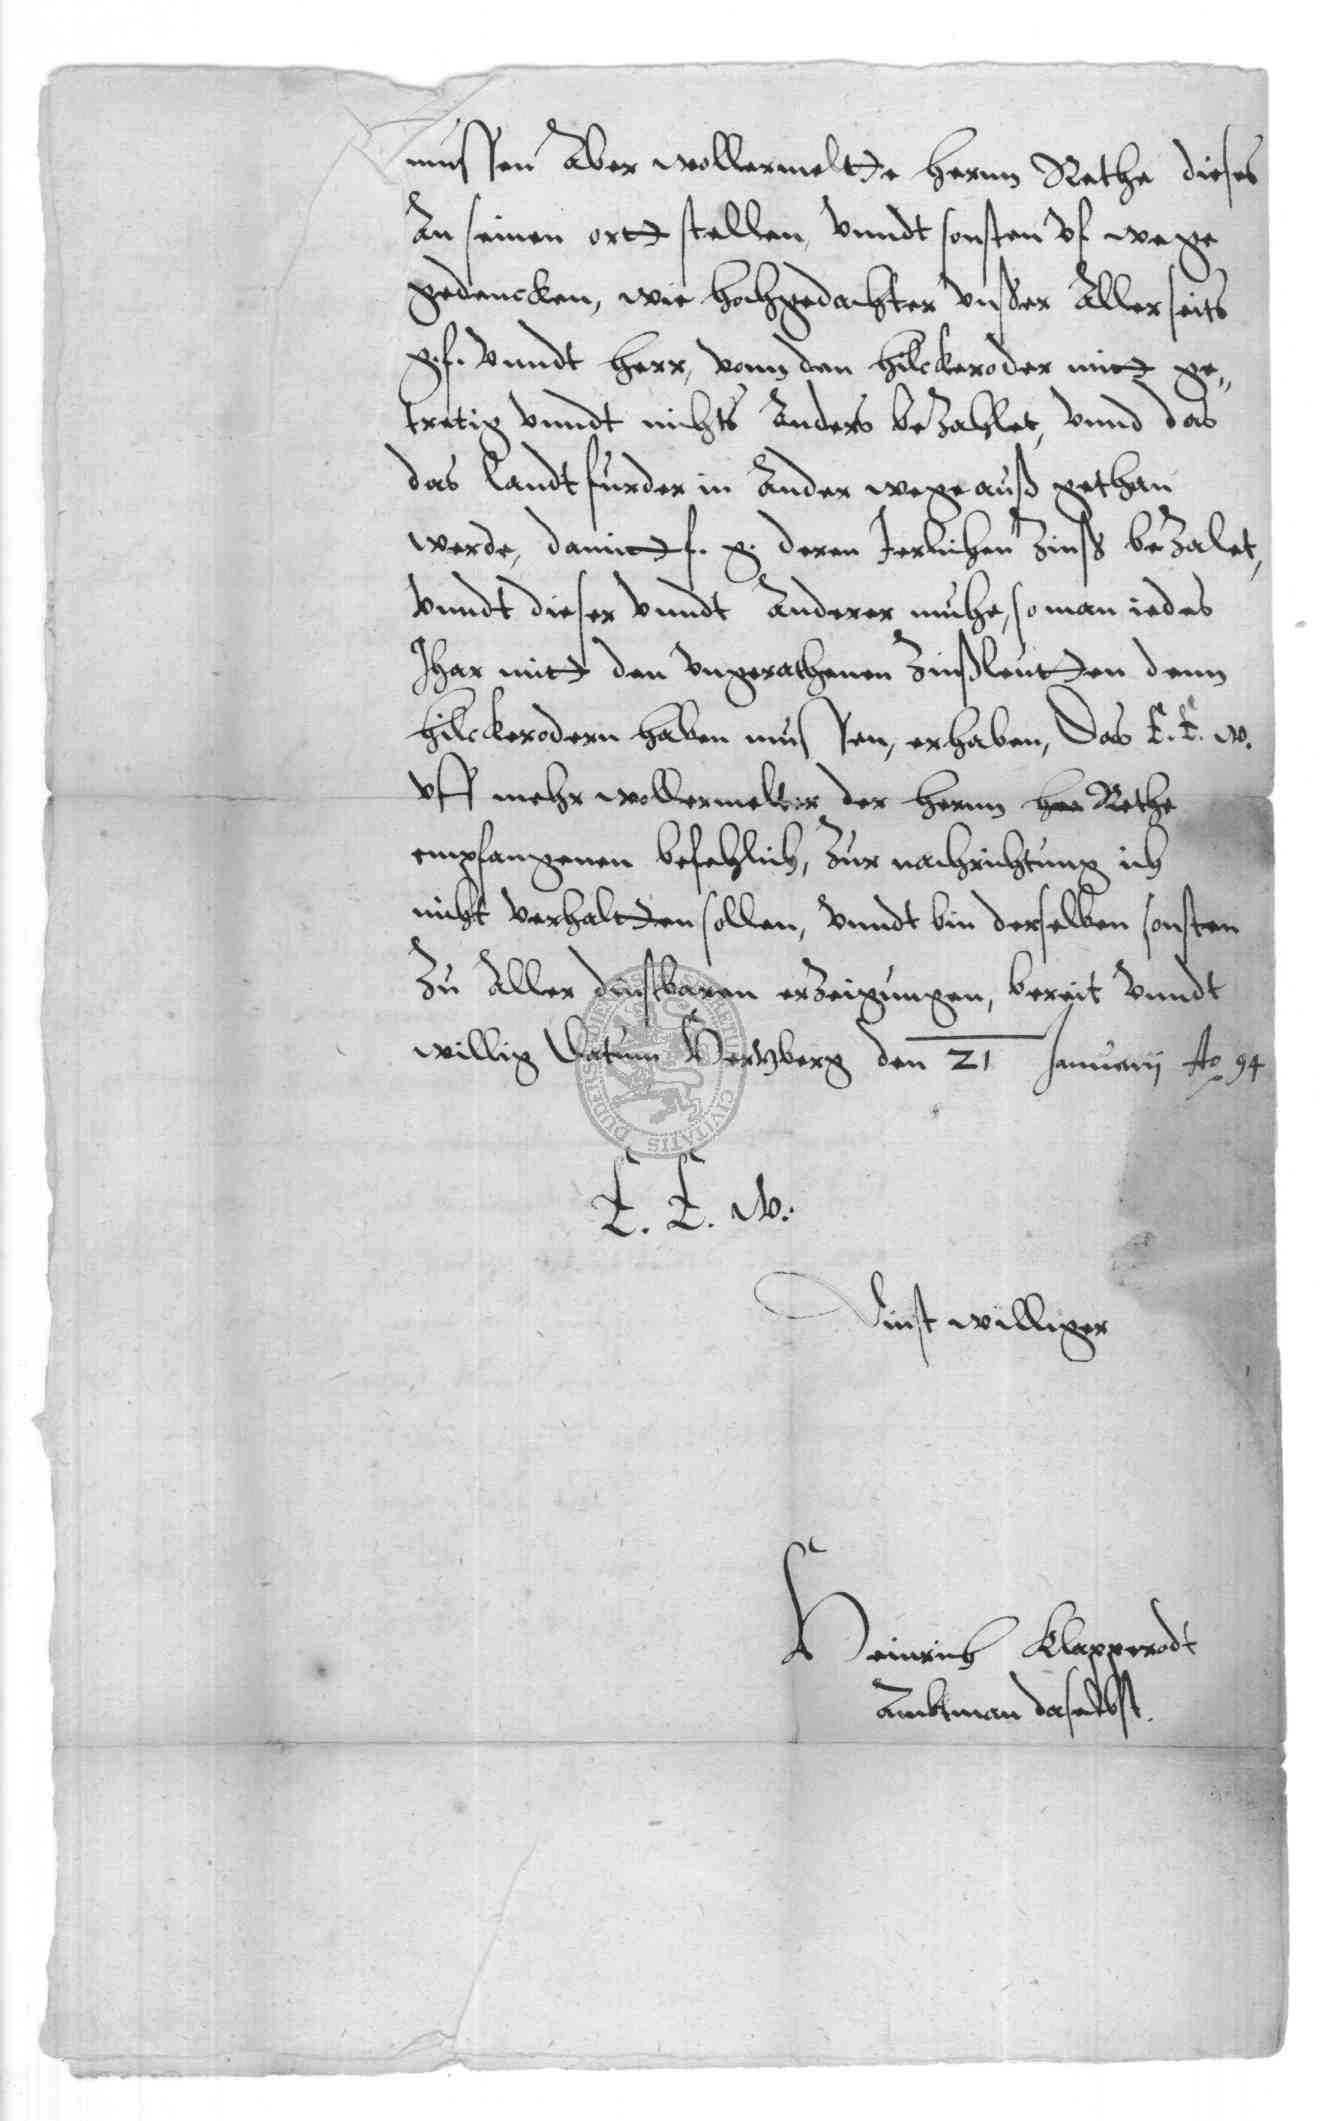 mussen Aber wollermeltte hernn Rethe dieses
An seinen ortt stellen, vnndt sonsten vf wege
gedencken, wie hochgedachter vnßer Aller seits
g. f. vnndt herr, vonn den hilckeroder mitt ge„
tretig vnndt nichts Anders beZahlet, vnnd das
das landt furder in Ander wege auß gethan
werde, damitt f. g. deren Jerlichen Zinß beZalet,
vnndt dieser vnndt Anderer muhe, so man iedes
Jhar mitt den vngerathenen Zinßleutten denn
hilckerodern haben mussen, erhaben, Das E. E. W.
vff mehr wollermelter der hernn Rethe
empfangenen befehlich, Zur nachrichtung ich
nicht verhaltten sollen, vnndt bin derselben sonsten
Zu Aller dinstbaren erZeigungen, bereit vnndt
willig Datum Hertzberg den 21 Januarij Ao 94
E. E. W.
Dinst williger
Heinrich Klapperodt
Ambtman daselbst.
CIVITATIS DUDERST